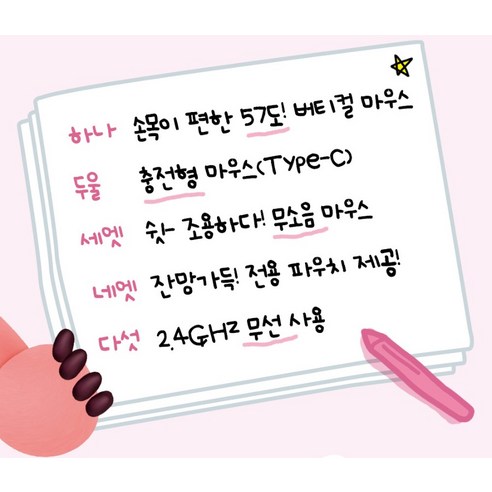 하나 손목이 편한 57도! 버티컬 마우스
두울 충전형 마우스(Type-C)
세엣 쉿- 조용하다! 무소음 마우스
네엣 잔망가득! 전용 파우치 제공!
다섯 2.4GHz 무선 사용